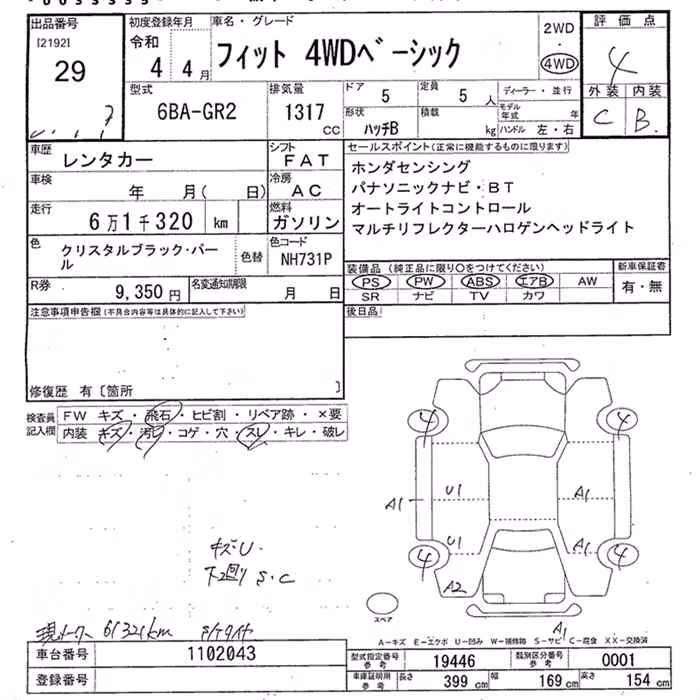 出品番号
[2192]
29
初度登録年月
令和
4 4月
車名・グレード
フィット 4WDベーシック
2WD
・
4WD
評価点
4
外装 内装
C B
型式
6BA-GR2
排気量
1317
CC
ドア
5
定員
5人
ディーラー・並行
モデル年式 年
形状
ハッチB
積載
kg
ハンドル 左・右
車歴
レンタカー
シフト
FAT
車検
年 月( 日)
冷房
AC
走行
6万1千320 km
燃料
ガソリン
色
クリスタルブラック・パール
色替
色コード
NH731P
R券
9,350円
名変通知期限
月 日
セールスポイント(正常に機能するものに限ります)
ホンダセンシング
パナソニックナビ・BT
オートライトコントロール
マルチリフレクターハロゲンヘッドライト
装備品 (純正品に限り○をつけてください)
新車保証書
PS PW ABS エアB AW
有・無
SR ナビ TV カワ
後日品
注意事項申告欄(不具合内容等は具体的に記入して下さい)
修復歴 有〔箇所 〕
検査員
記入欄
FW キズ・飛石・ヒビ割・リペア跡・×要
内装 キズ・汚レ・コゲ・穴・スレ・キレ・破レ
4 4
A1 U1 A1
U1 A1
4 4
A2
キズ・U
下回り S・C
スペア
A1
現メーター 61321km
A-キズ E-エクボ U-凹み W-補修跡 S-サビ C-腐食 XX-交換済
車台番号
1102043
登録番号
型式指定番号
参考
19446
類別区分番号
参考
0001
車庫証明用
参考
長さ
399 cm
幅
169 cm
高さ
154 cm